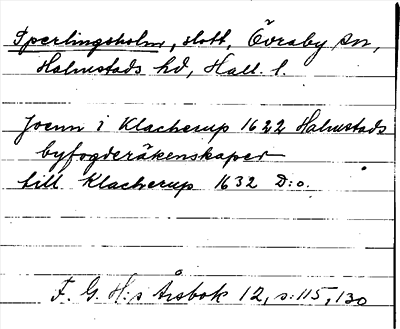 Sperlingsholm, slott, Övraby sn,
Halmstads hd, Hall. l.
Joenn i Klacherup 1622 Halmstads
byfogderäkenskaper
till Klacherup 1632 D:o.
F. G. H:s Årsbok 12, s. 115, 130